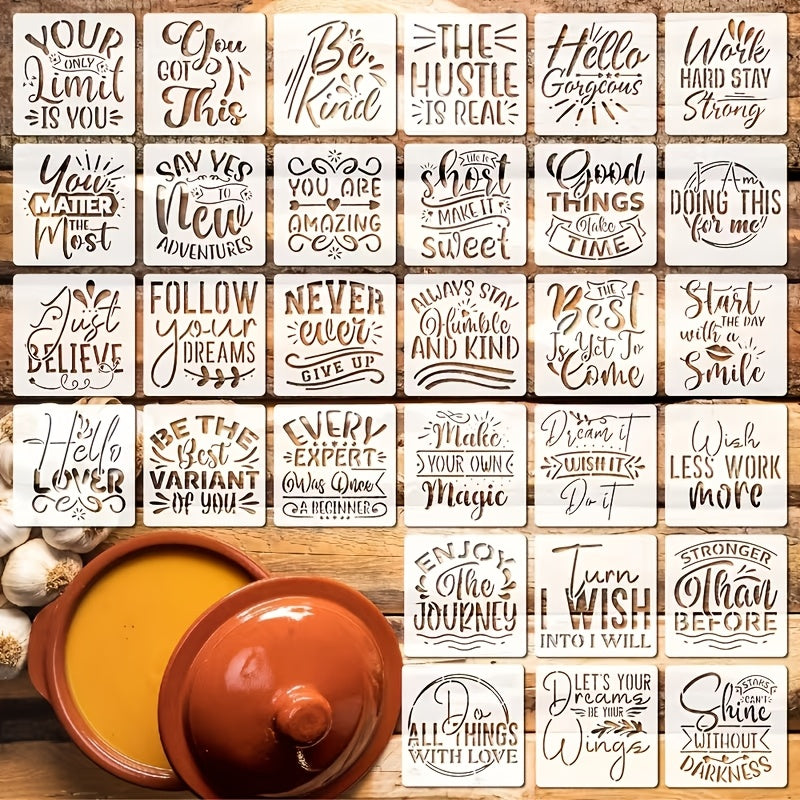 YOUR
ONLY
Limit
IS YOU
You
GOT
This
Be
Kind
THE
HUSTLE
IS REAL
Hello
Gorgeous
Work
HARD STAY
Strong
You
MATTER
THE
Most
SAY YES
TO
New
ADVENTURES
YOU ARE
AMAZING
life is
short
MAKE IT
sweet
Good
THINGS
Take
TIME
I Am
DOING THIS
for me
Just
BELIEVE
FOLLOW
your
DREAMS
NEVER
ever
GIVE UP
ALWAYS STAY
Humble
AND KIND
THE
Best
Is Yet To
Come
Start
THE DAY
with a
Smile
Hello
LOVER
BE THE
Best
VARIANT
OF YOU
EVERY
EXPERT
Was Once
A BEGINNER
Make
YOUR OWN
Magic
Dream it
WISH IT
Do it
Wish
LESS WORK
more
ENJOY
The
JOURNEY
Turn
I WISH
INTO I WILL
STRONGER
Than
BEFORE
Do
ALL THINGS
WITH LOVE
LET'S YOUR
Dreams
BE YOUR
Wings
STARS
CAN'T
Shine
WITHOUT
DARKNESS